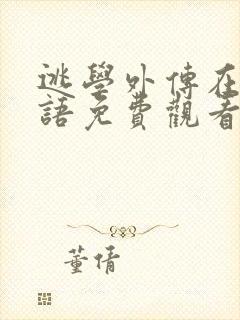 逃學外傳在
語免費觀看
董倩